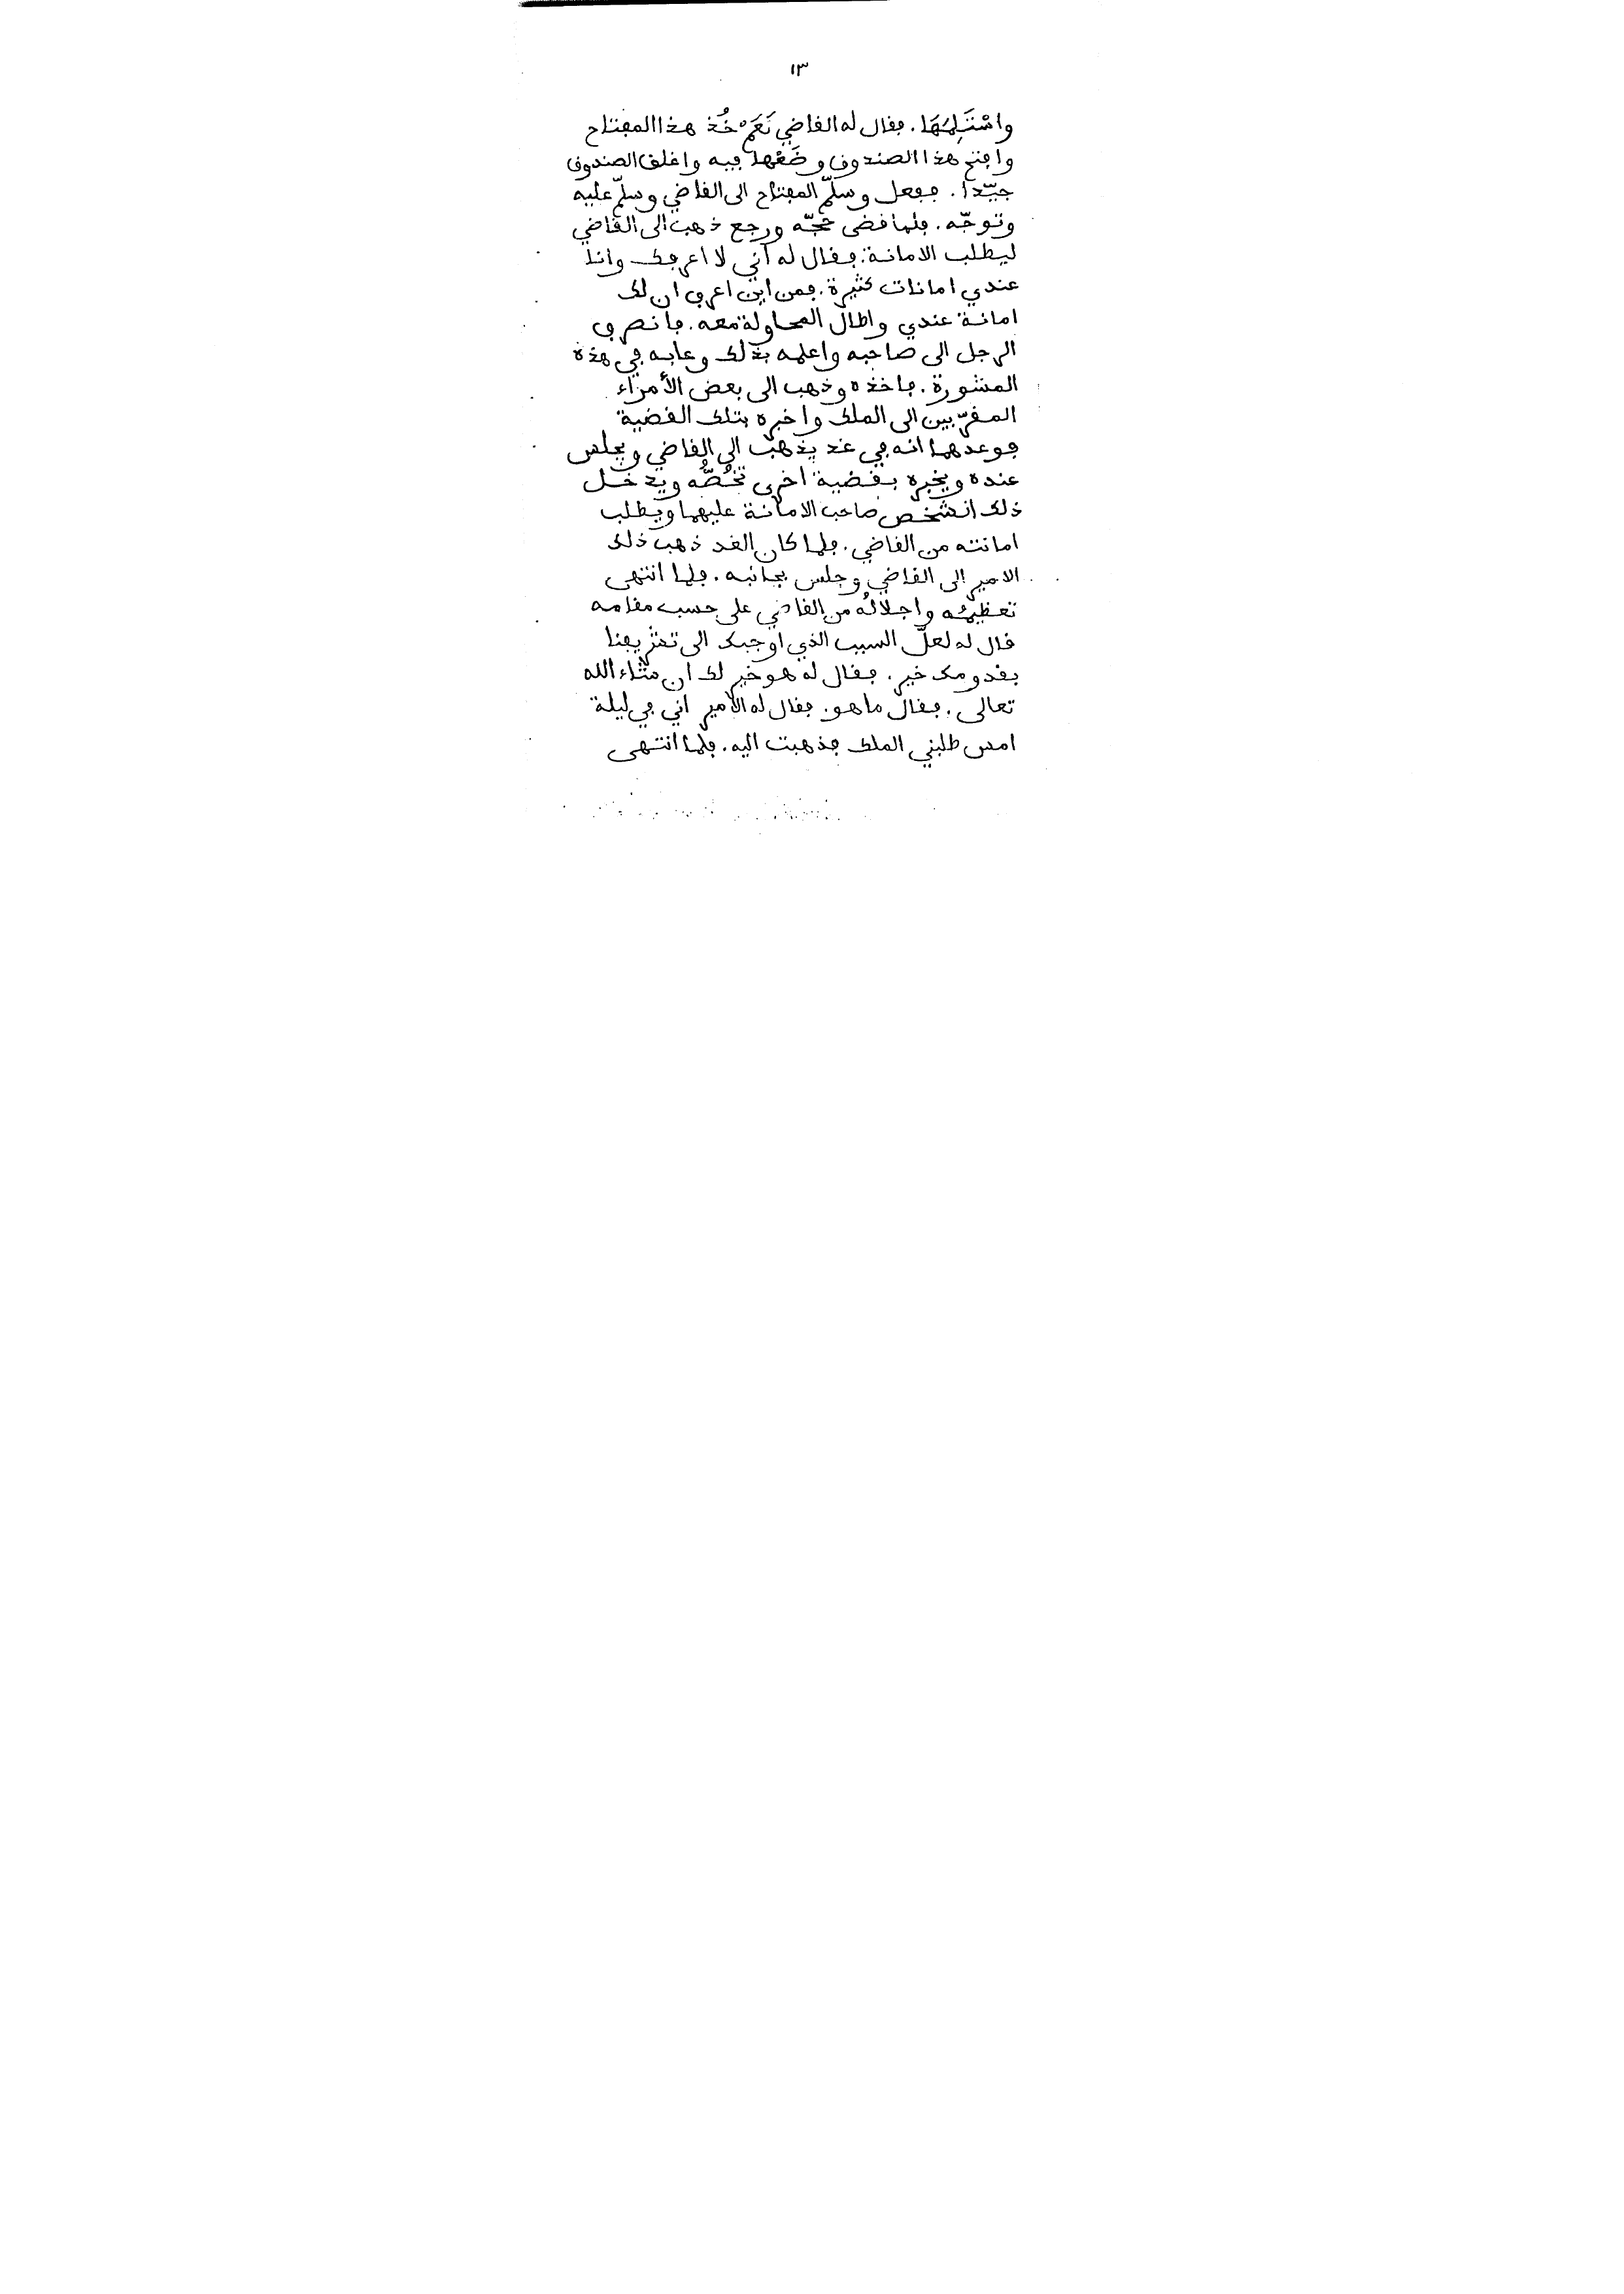 ١٣
واسْتَلِمْهَا. فقال له القاضي نَعَمْ خُذ هذا المفتاح
وافتح هذا الصندوق وضَعْها فيه واغلق الصندوق
جيّدا. ففعل وسلّم المفتاح الى القاضي وسلّم عليه
وتوجّه. فلما قضى حجّه ورجع ذهب الى القاضي
ليطلب الامانة. فقال له اني لا اعرفك وانا
عندي امانات كثيرة. فمن اين اعرف ان لك
امانة عندي واطال المحاولة معه. فانصرف
الرجل الى صاحبه واعلمه بذلك وعابه في هذه
المشورة. فاخذه وذهب الى بعض الأمراء
المقرّبين الى الملك واخبره بتلك القضية
فوعدهما انه في غد يذهب الى القاضي ويجلس
عنده ويخبره بقضية اخرى تخُصُّه ويدخل
ذلك الشخص صاحب الامانة عليهما ويطلب
امانته من القاضي. فلما كان الغد ذهب ذلك
الامير الى القاضي وجلس بجانبه. فلما انتهى
تعظيمُه واجلالُه من القاضي على حسب مقامه
قال له لعلّ السبب الذي اوجبك الى تشريفنا
بقدومك خير. فقال له هو خير لك ان شاء الله
تعالى. فقال ما هو. فقال له الامير اني في ليلة
امس طلبني الملك فذهبت اليه. فلما انتهى